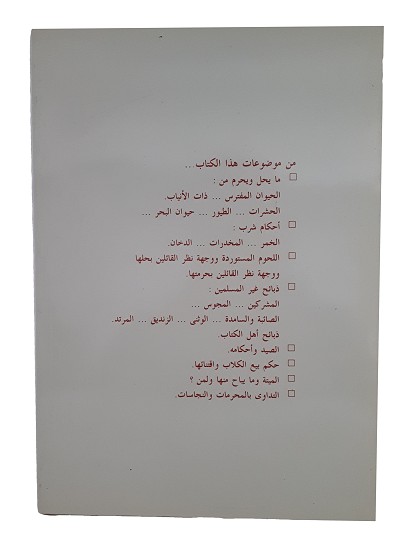 من موضوعات هذا الكتاب ...
ما يحل ويحرم من :
الحيوان المفترس ... ذات الأنياب.
الحشرات ... الطيور ... حيوان البحر ...
أحكام شرب :
الخمر ... المخدرات ... الدخان.
اللحوم المستوردة ووجهة نظر القائلين بحلها
ووجهة نظر القائلين بحرمتها.
ذبائح غير المسلمين :
المشركين ... المجوس ...
الصائبة والسامدة ... الوثنى ... الزنديق ... المرتد.
ذبائح أهل الكتاب.
الصيد وأحكامه.
حكم بيع الكلاب واقتنائها.
الميتة وما يباح منها ولمن ؟
التداوى بالمحرمات والنجاسات.